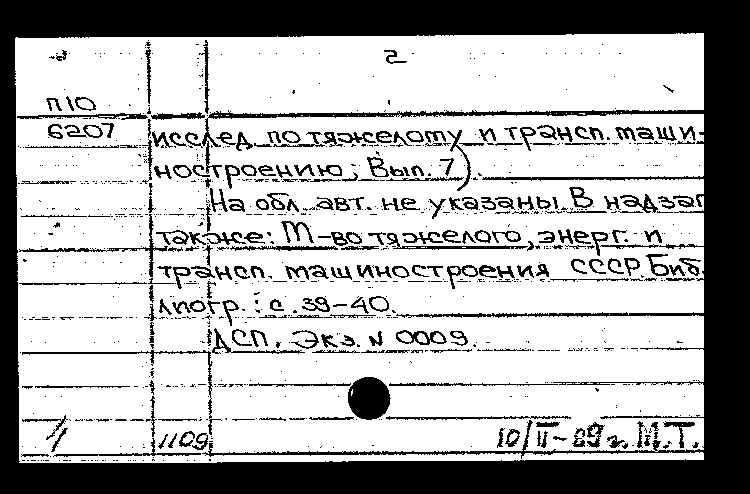 2
П10
6207 исслед. по тяжелому и трансп. маши-
ностроению; Вып. 7).
На обл. авт. не указаны. В надзаг
также: М-во тяжелого, энерг. и
трансп. машиностроения СССР. Биб-
лиогр.: с. 39-40.
ДСП. Экз. N 0009.
1109 10/II-89 г. М.Т.